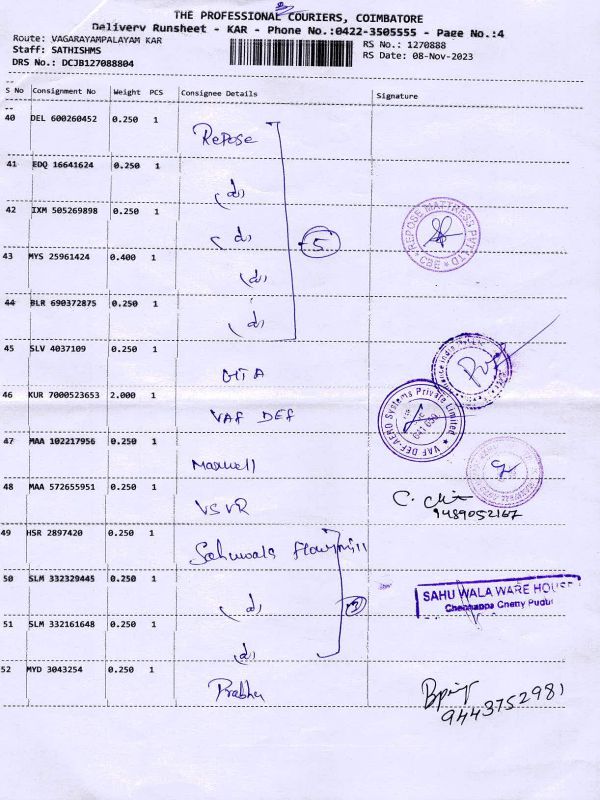 THE PROFESSIONAL COURIERS, COIMBATORE
Delivery Runsheet - KAR - Phone No.:0422-3505555 - Page No.:4
Route: VAGARAYAMPALAYAM KAR
RS No.: 1270888
Staff: SATHISHMS
RS Date: 08-Nov-2023
DRS No.: DCJB127088804
S No Consignment No Weight PCS Consignee Details Signature
40 DEL 600260452 0.250 1 Repose
41 EDQ 16641624 0.250 1 (d)
42 IXM 505269898 0.250 1 (d)
5
REPOSE MATTRESS PVT LTD
CBE
43 MYS 25961424 0.400 1 (d)
44 BLR 690372875 0.250 1 (d)
45 SLV 4037109 0.250 1
46 KUR 7000523653 2.000 1 VAF DEF
VAF DEF-AERO Systems Private Limited
641 659
47 MAA 102217956 0.250 1 Maxwell
48 MAA 572655951 0.250 1 VSVR
9489052167
49 HSR 2897420 0.250 1 Sahuwala Flourmill
50 SLM 332329445 0.250 1 (d)
SAHU WALA WARE HOUSE
Chennappa Chetty Pudur
51 SLM 332161648 0.250 1 (d)
52 MYD 3043254 0.250 1 Prabhu
9443752981